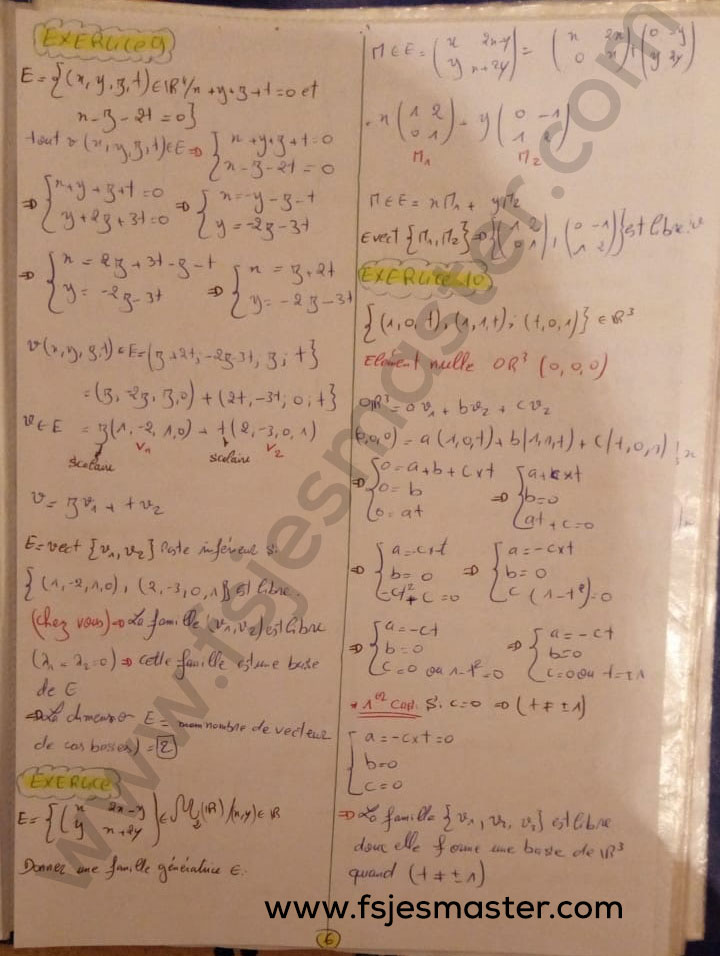 EXERCICE 9
E = {(x, y, z, t) ∈ IR⁴ / x + y + z + t = 0 et
x - z - 2t = 0}
tout v (x, y, z, t) ∈ E ⇒ { x + y + z + t = 0
x - z - 2t = 0
⇒ { x + y + z + t = 0
y + 2z + 3t = 0
⇒ { x = -y - z - t
y = -2z - 3t
⇒ { x = 2z + 3t - z - t
y = -2z - 3t
⇒ { x = z + 2t
y = -2z - 3t
v (x, y, z, t) ∈ E = (z + 2t, -2z - 3t, z, t}
= (z, -2z, z, 0) + (2t, -3t, 0, t}
v ∈ E = z (1, -2, 1, 0) + t (2, -3, 0, 1)
scalaire v1 scalaire v2
v = z v1 + t v2
E = vect {v1, v2}
{(1, -2, 1, 0), (2, -3, 0, 1)} est libre.
(chez vous) ⇒ La famille (v1, v2) est libre
(λ1 = λ2 = 0) ⇒ cette famille est une base
de E
⇒ La dimension E = nombre de vecteur
de cas bases) = 2
EXERCICE
E = {(x 2x-y
y x+2y)} ∈ M2 (IR) / (x, y) ∈ IR
Donner une famille génératrice E.
M ∈ E = (x 2x-y
y x+2y) = (x 2x
0 x) + (0 -y
y 2y)
= x (1 2
0 1) + y (0 -1
1 2)
M1 M2
M ∈ E = x M1 + y M2
E vect {M1, M2} ⇒ {(1 2
0 1), (0 -1
1 2)} est libre
EXERCICE 10
{(1, 0, t), (1, 1, t), (t, 0, 1)} ∈ IR³
Element nulle OR³ (0, 0, 0)
OR³ = a v1 + b v2 + c v2
(0, 0, 0) = a (1, 0, t) + b (1, 1, t) + c (t, 0, 1)
⇒ { 0 = a + b + c x t
0 = b
0 = at
⇒ { a + c x t
b = 0
at + c = 0
⇒ { a = -c x t
b = 0
-ct² + c = 0
⇒ { a = -c x t
b = 0
c (1 - t²) = 0
⇒ { a = -ct
b = 0
c = 0 ou 1 - t² = 0
⇒ { a = -ct
b = 0
c = 0 ou t = ±1
* 1er cas. Si c = 0 ⇒ (t ≠ ±1)
{ a = -c x t = 0
b = 0
c = 0
⇒ La famille {v1, v2, v3} est libre
donc elle forme une base de IR³
quand (t ≠ ±1)
6
www.fsjesmaster.com
www.fsjesmaster.com